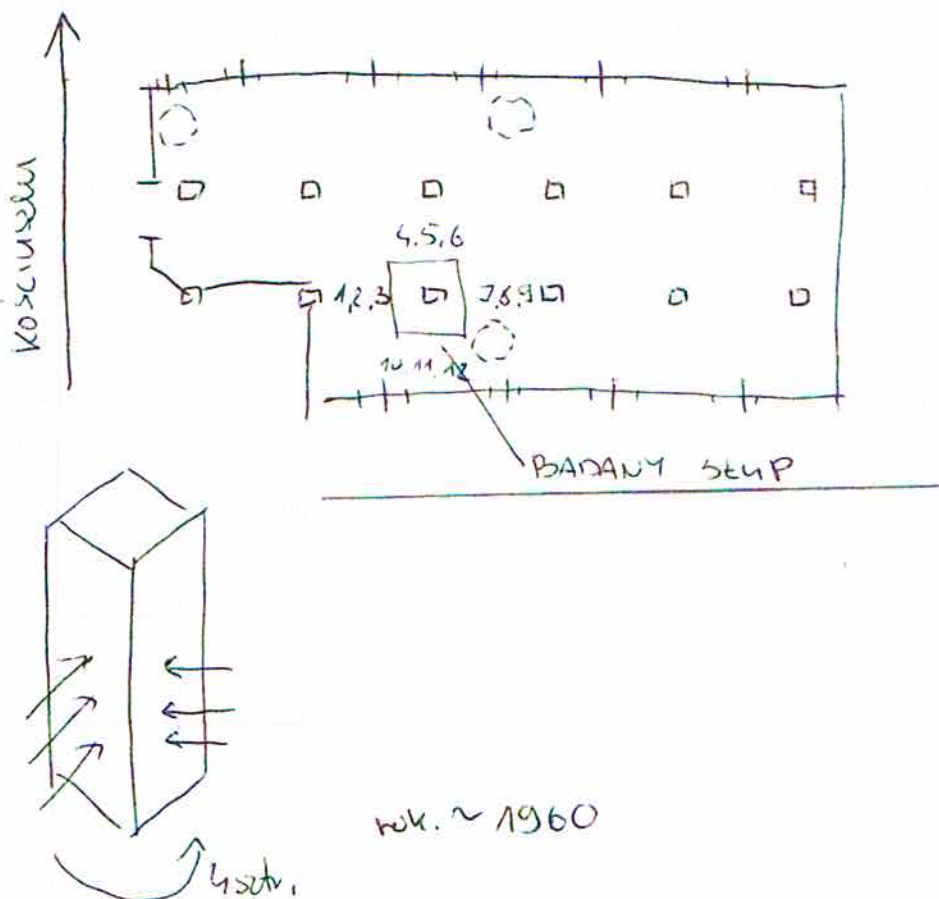 KOŚCIUSZKI
4,5,6
1,2,3
7,8,9
10,11,12
BADANY SŁUP
4 sztr.
rok. ~ 1960